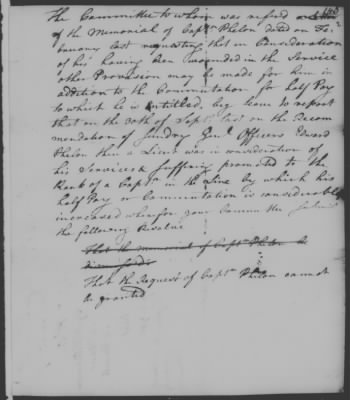 The Committee to whom was referd
of the Memorial of Capt.n Phelon dated on Fe-
bruary last requesting that in Consideration
of his having been wounded in the Service
other Provision may be made for him in
addition to the Commutation for half Pay
to which he is Entitled. beg leave to report
that on the 30th of Sept.r last on the Recom
mendation of sundry Gen.l Officers Edward
Phelon then a Lieut was in consideration of
his Services & suffering promoted to the
Rank of a Capt.n in the Line by which his
half Pay or Commutation is considerably
increased wherefor your Committee submit
the following Resolve
That the memorial of Capt.n Phelon be
That the Request of Capt.n Phelon cannot
be granted